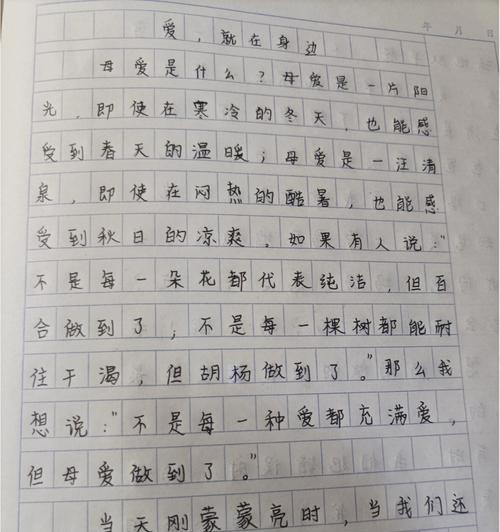 年 月 日
爱，就在身边
母爱是什么？母爱是一片阳
光，即使在寒冷的冬天，也能感
受到春天的温暖；母爱是一汪清
泉，即使在闷热的酷暑，也能感
受到秋日的凉爽。如果有人说：“
不是每一朵花都代表纯洁，但百
合做到了；不是每一棵树都能耐
住干渴，但胡杨做到了。”那么我
想说：“不是每一种爱都充满爱，
但母爱做到了。”
当天刚蒙蒙亮时，当我们还